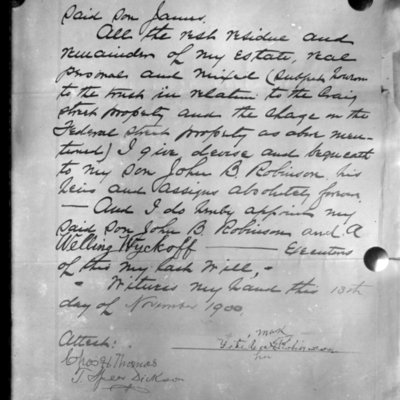 said son James.
All the rest residue and
remainder of my estate, real
personal and mixed (subject however
to the trust in relation to the Craig
street property and the charge on the
Federal street property as above men-
tioned) I give, devise and bequeath
to my son John B. Robinson his
heirs and assigns absolutely forever.
— And I do hereby appoint my
said son John B. Robinson and A
Welling Wyckoff — Executors
of this my last Will, -
- Witness my hand this 13th
day of November 1900.
mark
Attest: Robinson
her
Thomas
T. Speer Dickson